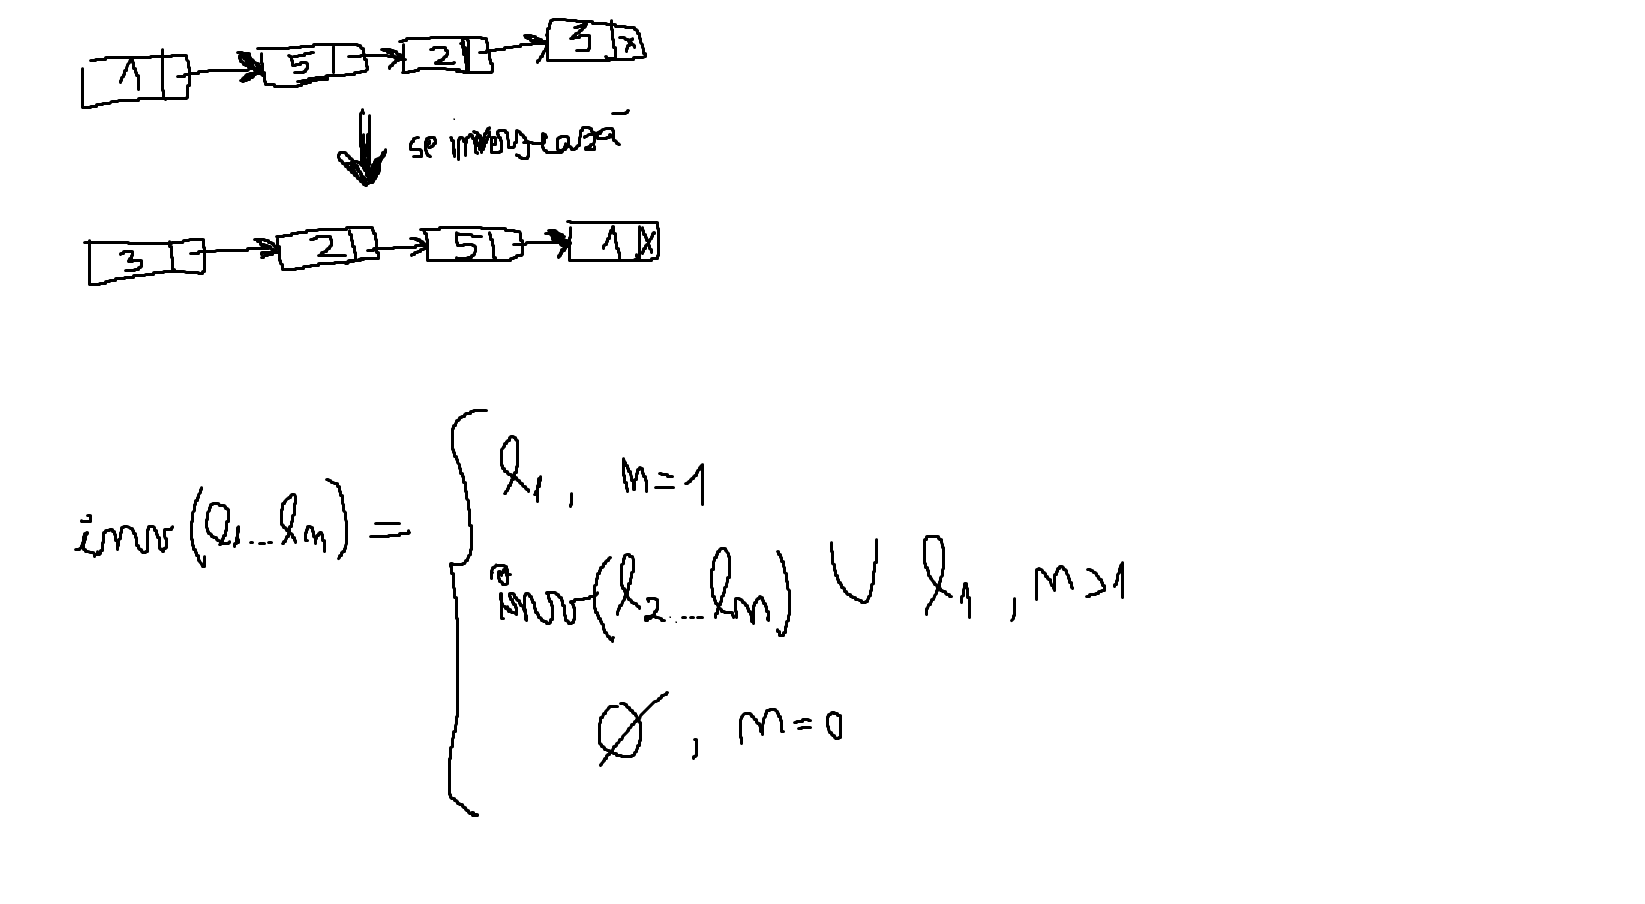 1 5 2 3 x
se inversează
3 2 5 1 x
l₁, n=1
inv(l₁...lₙ) =
inv(l₂...lₙ) ∪ l₁, n>1
∅, n=0